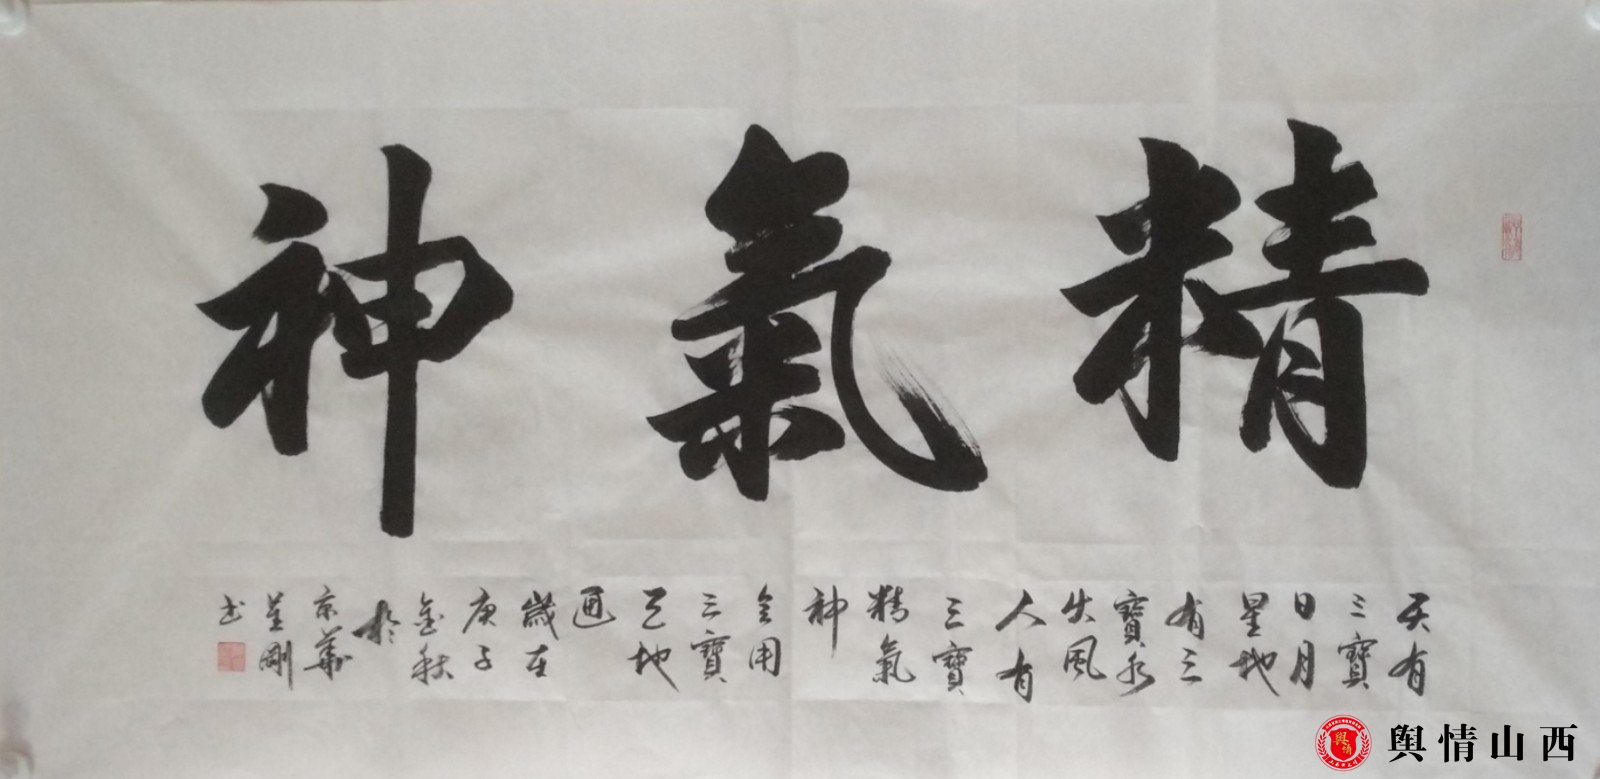 精氣神
天有
三寶
日月
星地
有三
寶水
火風
人有
三寶
精氣
神
用
三寶
地
通
歲在
庚子
金秋
於
京華
剛
书
舆情山西